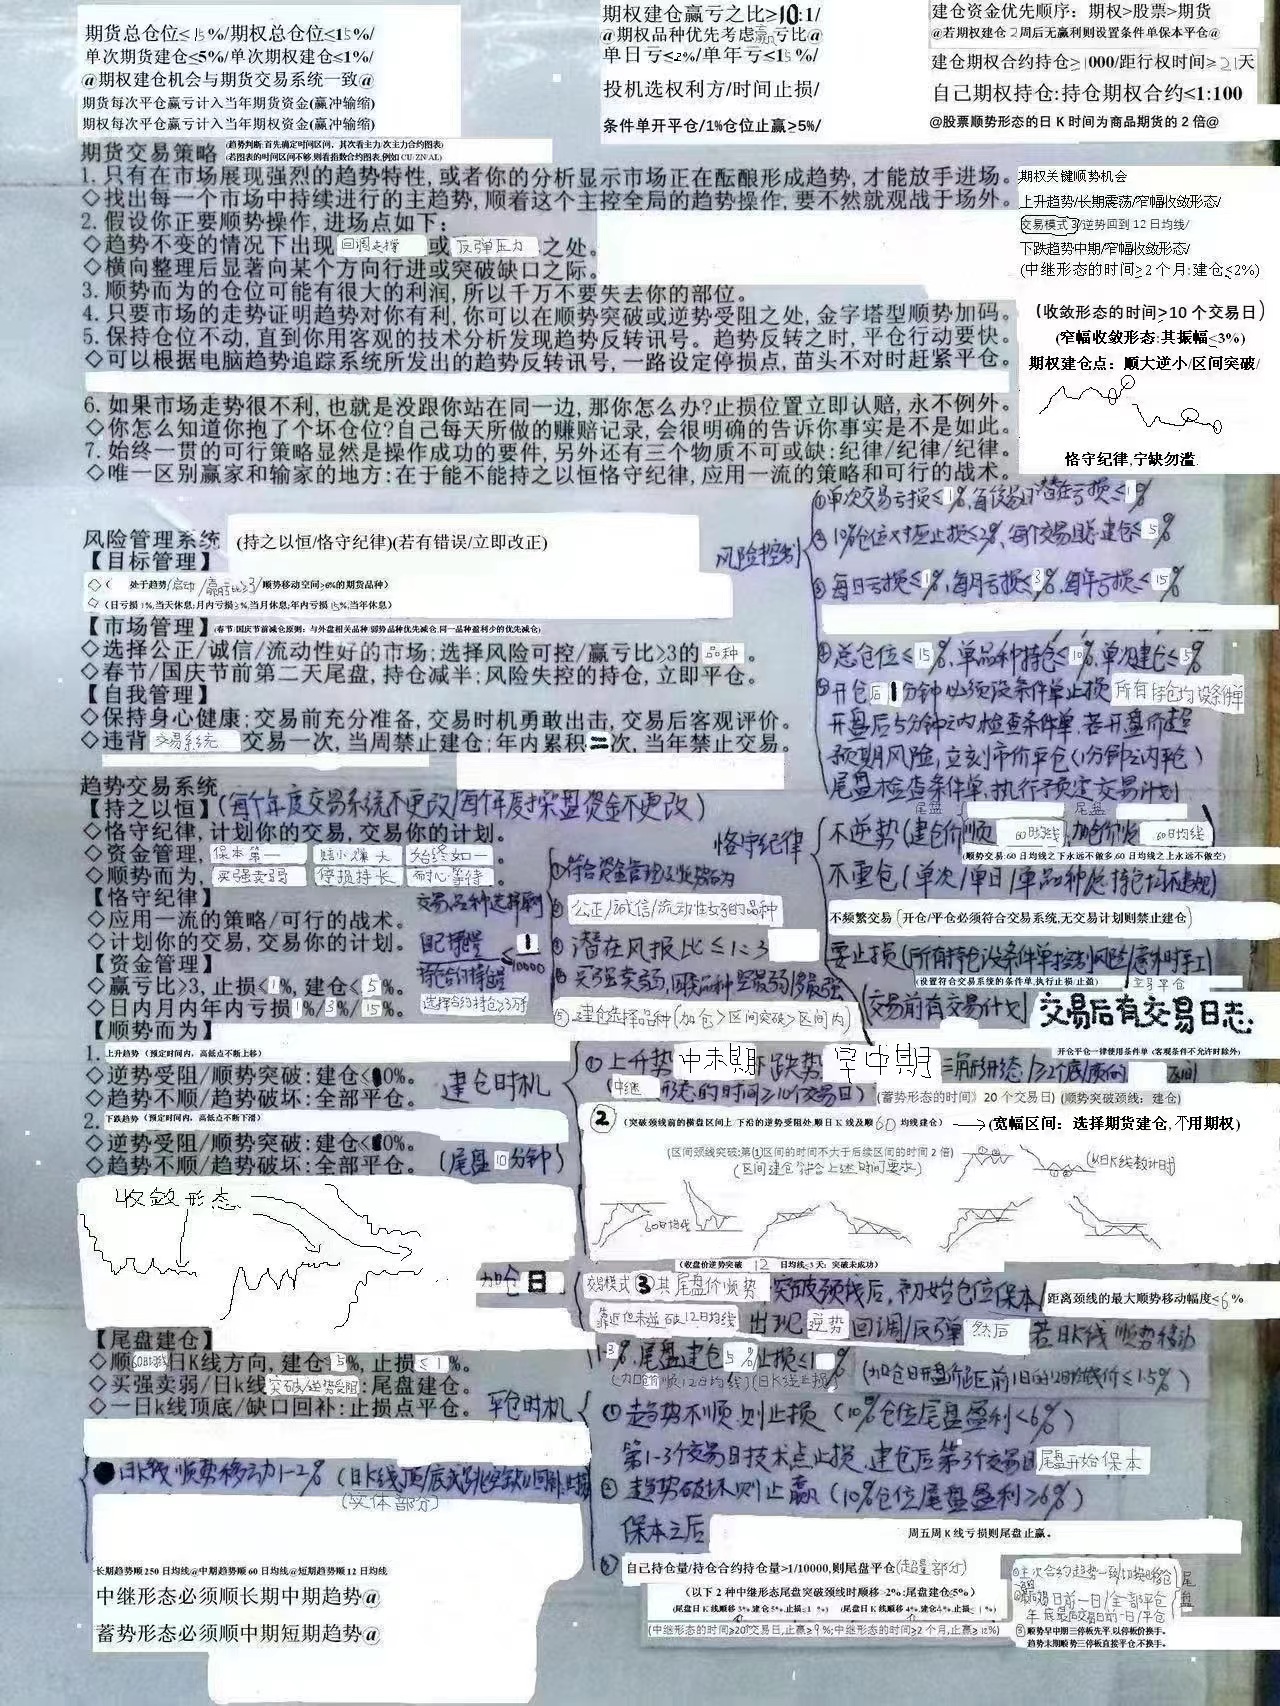 期货总仓位≤15%/期权总仓位≤15%/
单次期货建仓≤5%/单次期权建仓≤1%/
@期权建仓机会与期货交易系统一致@
期货每次平仓赢亏计入当年期货资金(赢冲输缩)
期权每次平仓赢亏计入当年期权资金(赢冲输缩)
期权建仓赢亏之比≥10:1/
@期权品种优先考虑赢亏比@
单日亏≤2%/单年亏≤15%/
投机选权利方/时间止损/
条件单开平仓/1%仓位止赢≥5%/
建仓资金优先顺序：期权>股票>期货
@若期权建仓2周后无赢利则设置条件单保本平仓@
建仓期权合约持仓≥1000/距行权时间≥21天
自己期权持仓:持仓期权合约≤1:100
@股票顺势形态的日K时间为商品期货的2倍@
期货交易策略
(趋势判断:首先确定时间区间，其次看主力/次主力合约图表)
(若图表的时间区间不够,则看指数合约图表,例如CU/ZN/AL)
1. 只有在市场展现强烈的趋势特性,或者你的分析显示市场正在酝酿形成趋势,才能放手进场。
◇找出每一个市场中持续进行的主趋势,顺着这个主控全局的趋势操作,要不然就观战于场外。
2. 假设你正要顺势操作,进场点如下:
◇趋势不变的情况下出现回调支撑或反弹压力之处。
◇横向整理后显著向某个方向行进或突破缺口之际。
3. 顺势而为的仓位可能有很大的利润,所以千万不要失去你的部位。
4. 只要市场的走势证明趋势对你有利,你可以在顺势突破或逆势受阻之处,金字塔型顺势加码。
5. 保持仓位不动,直到你用客观的技术分析发现趋势反转讯号。趋势反转之时,平仓行动要快。
◇可以根据电脑趋势追踪系统所发出的趋势反转讯号,一路设定停损点,苗头不对时赶紧平仓。
6. 如果市场走势很不利,也就是没跟你站在同一边,那你怎么办?止损位置立即认赔,永不例外。
◇你怎么知道你抱了个坏仓位?自己每天所做的赚赔记录,会很明确的告诉你事实是不是如此。
7. 始终一贯的可行策略显然是操作成功的要件,另外还有三个物质不可或缺:纪律/纪律/纪律。
◇唯一区别赢家和输家的地方:在于能不能持之以恒恪守纪律,应用一流的策略和可行的战术。
期权关键顺势机会
上升趋势/长期震荡/窄幅收敛形态/
交易模式3/逆势回到12日均线/
下跌趋势中期/窄幅收敛形态/
(中继形态的时间≥2个月:建仓≤2%)
(收敛形态的时间≥10个交易日)
(窄幅收敛形态:其振幅≤3%)
期权建仓点：顺大逆小/区间突破/
恪守纪律,宁缺勿滥.
风险管理系统 (持之以恒/恪守纪律)(若有错误/立即改正)
【目标管理】
◇( 处于趋势/启动/赢亏比≥3/顺势移动空间>6%的期货品种)
◇(日亏损1%,当天休息;月内亏损3%,当月休息;年内亏损15%,当年休息)
【市场管理】(春节/国庆节前减仓原则：与外盘相关品种/弱势品种优先减仓,同一品种盈利少的优先减仓)
◇选择公正/诚信/流动性好的市场;选择风险可控/赢亏比≥3的品种。
◇春节/国庆节前第二天尾盘,持仓减半;风险失控的持仓,立即平仓。
【自我管理】
◇保持身心健康;交易前充分准备,交易时机勇敢出击,交易后客观评价。
◇违背交易系统交易一次,当周禁止建仓;年内累积二次,当年禁止交易。
风险控制
①单次交易亏损≤1%,首仓当日潜在亏损≤1%
②10%仓位对应止损≤2%,每个交易日总建仓≤5%
③每日亏损≤1%,每月亏损≤3%,每年亏损≤15%
④总仓位≤15%,单品种持仓≤10%,单次建仓≤5%
⑤开仓后1分钟必须设条件单止损 所有持仓均设条件单
开盘后5分钟之内检查条件单,若开盘价超
预期风险,立刻市价平仓(1分钟之内平仓)
尾盘检查条件单,执行予定交易计划
趋势交易系统
【持之以恒】(每个年度交易系统不更改/每个年度操盘资金不更改)
◇恪守纪律,计划你的交易,交易你的计划。
◇资金管理,保本第一 赔小赚大 始终如一。
◇顺势而为,买强卖弱 停损持长 耐心等待。
【恪守纪律】
◇应用一流的策略/可行的战术。
◇计划你的交易,交易你的计划。
【资金管理】
◇赢亏比>3,止损≤1%,建仓≤5%。
◇日内月内年内亏损1%/3%/15%。
【顺势而为】
交易品种选择原则
自己持仓量/持仓合约持仓量≤1/10000
选择合约持仓≥3万手
①符合资金管理及顺势而为
②公正/诚信/流动性好的品种
③潜在风报比≤1:3
④买强卖弱,同类品种空最弱/多最强
⑤建仓选择品种(加仓>区间突破>区间内)
恪守纪律
尾盘 尾盘
不逆势(建仓价顺60日均线,加仓价顺60日均线)
(顺势交易:60日均线之下永远不做多,60日均线之上永远不做空)
不重仓(单次/单日/单品种/总持仓均不违规)
不频繁交易(开仓/平仓必须符合交易系统,无交易计划则禁止建仓)
要止损(所有持仓设条件单控制风险/意外时手工)
(设置符合交易系统的条件单,执行止损/止盈) 立马平仓
(交易前有交易计划) 交易后有交易日志.
开仓平仓一律使用条件单(客观条件不允许时除外)
1. 上升趋势(预定时间内,高低点不断上移)
◇逆势受阻/顺势突破:建仓≤10%。
◇趋势不顺/趋势破坏:全部平仓。
2. 下跌趋势(预定时间内,高低点不断下滑)
◇逆势受阻/顺势突破:建仓≤10%。
◇趋势不顺/趋势破坏:全部平仓。
建仓时机
(尾盘10分钟)
①上升势中末期/下跌势早中期 三角形形态/≥2个底/顶的区间
(中继形态的时间≥10个交易日)(蓄势形态的时间》20个交易日)(顺势突破颈线：建仓)
②(突破颈线前的横盘区间上/下沿的逆势受阻处,顺日K线及顺60均线建仓)→(宽幅区间：选择期货建仓,不用期权)
(区间颈线突破:第①区间的时间不大于后续区间的时间2倍)
(区间建仓符合上述时间要求)
(以日K线数计时)
60日均线
收敛形态
(收盘价逆势突破12日均线≤3天：突破未成功)
加仓日
交易模式③其尾盘价顺势 突破颈线后,初始仓位保本 距离颈线的最大顺势移动幅度≤6%
靠近但未逆破12日均线 出现逆势回调/反弹 然后 若日K线顺势移动
1-3%,尾盘建仓5%/止损≤1%
(加仓价顺12日均线)(日K线止损) (加仓日开盘价距前1日的12日均线价≤1.5%)
【尾盘建仓】
◇顺60日均线日K线方向,建仓5%,止损≤1%。
◇买强卖弱/日k线突破/逆势受阻:尾盘建仓。
◇一日k线顶底/缺口回补:止损点平仓。
●日K线顺势移动1-2%
(实体部分)
平仓时机
①趋势不顺,则止损(10%仓位尾盘盈利<6%)
第1-3个交易日技术点止损,建仓后第3个交易日尾盘开始保本
②趋势破坏则止赢(10%仓位尾盘盈利≥6%)
保本之后 周五周K线亏损则尾盘止赢。
③自己持仓量/持仓合约持仓量>1/10000,则尾盘平仓(超量部分)
(以下2种中继形态尾盘突破颈线时顺移 2%:尾盘建仓5%)
(尾盘日K线顺移3%,建仓5%,止损≤1%) (尾盘日K线顺移4%,建仓4%,止损≤1%)
(中继形态的时间≥20个交易日,止赢≥9%;中继形态的时间≥2个月,止赢≥12%)
长期趋势顺250日均线@中期趋势顺60日均线@短期趋势顺12日均线
中继形态必须顺长期中期趋势@
蓄势形态必须顺中期短期趋势@
尾盘
③顺势早中期三停板先平,以停板价换手。
趋势末期顺势三停板直接平仓,不换手。